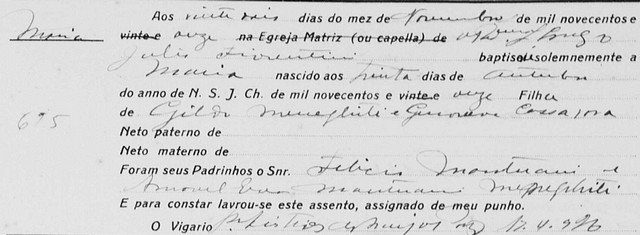 Aos vinte dois dias do mez de Novembro de mil novecentos e
Maria vinte e onze na Egreja Matriz (ou capella) de
Julio Fiorentini baptisei solemnemente a
Maria nascido aos trinta dias de outubro
do anno de N. S. J. Ch. de mil novecentos e vinte e onze Filha
695 de Gildo Meneghiti e Genoveva Cassa
Neto paterno de
Neto materno de
Foram seus Padrinhos o Snr. Felicio Mantuani e
Mantuani Meneghiti
E para constar lavrou-se este assento, assignado de meu punho.
O Vigario P.